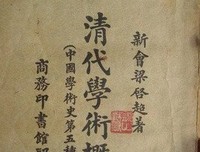 新會梁啓超著
清代學術概
(中國學術史第五種
商務印書館